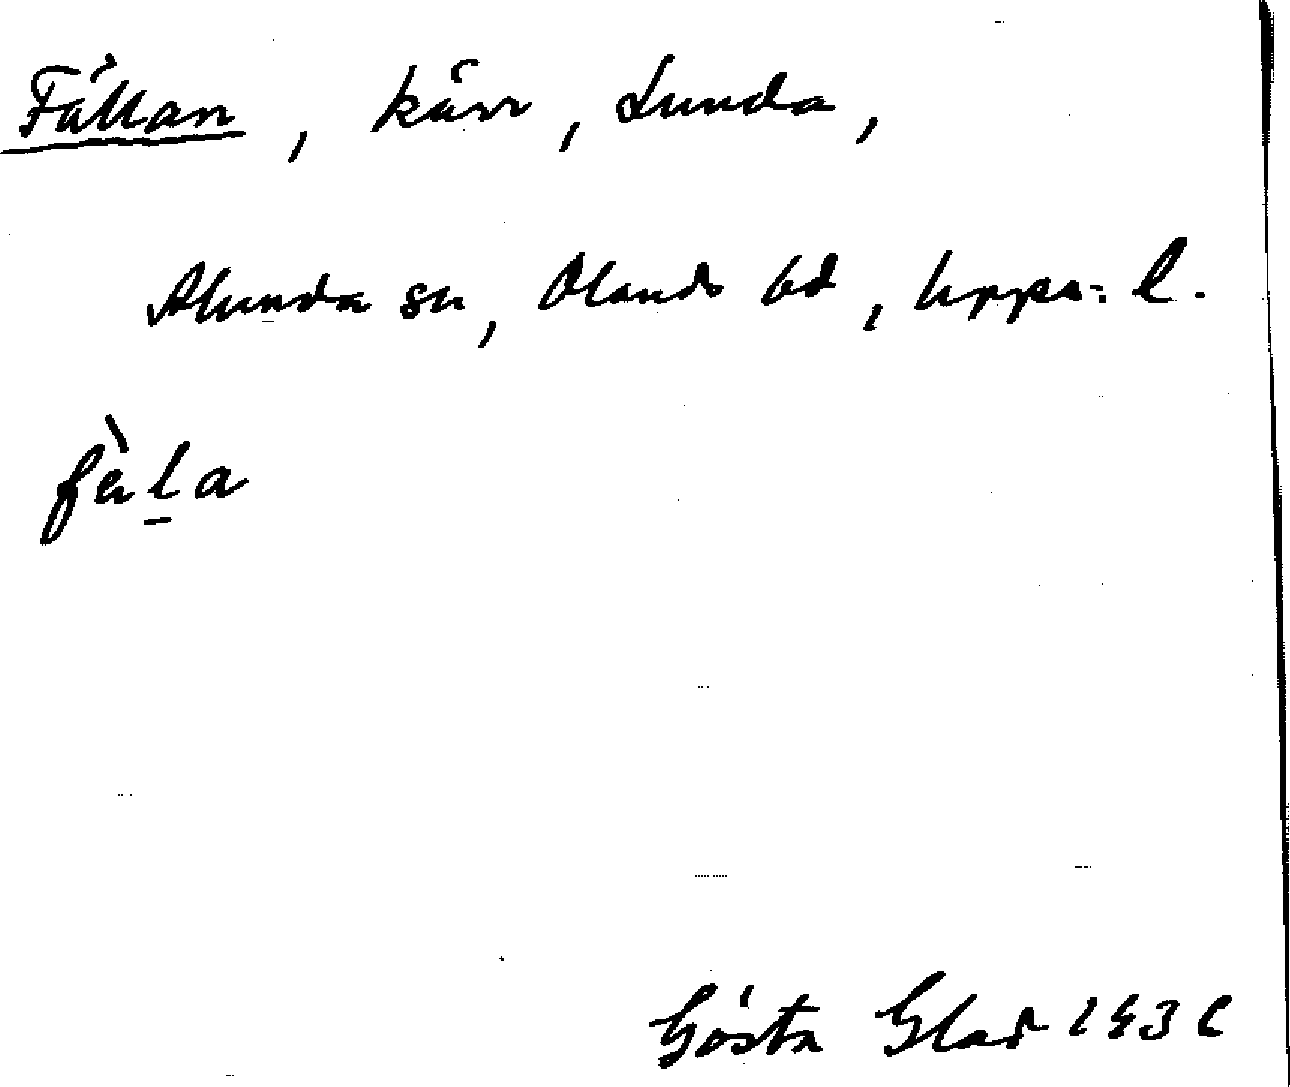 Fällan, kärr, Lunda,
Alunda sn, Olands hd, Upps. l.
fὰl̠a
Gösta Glad 1931